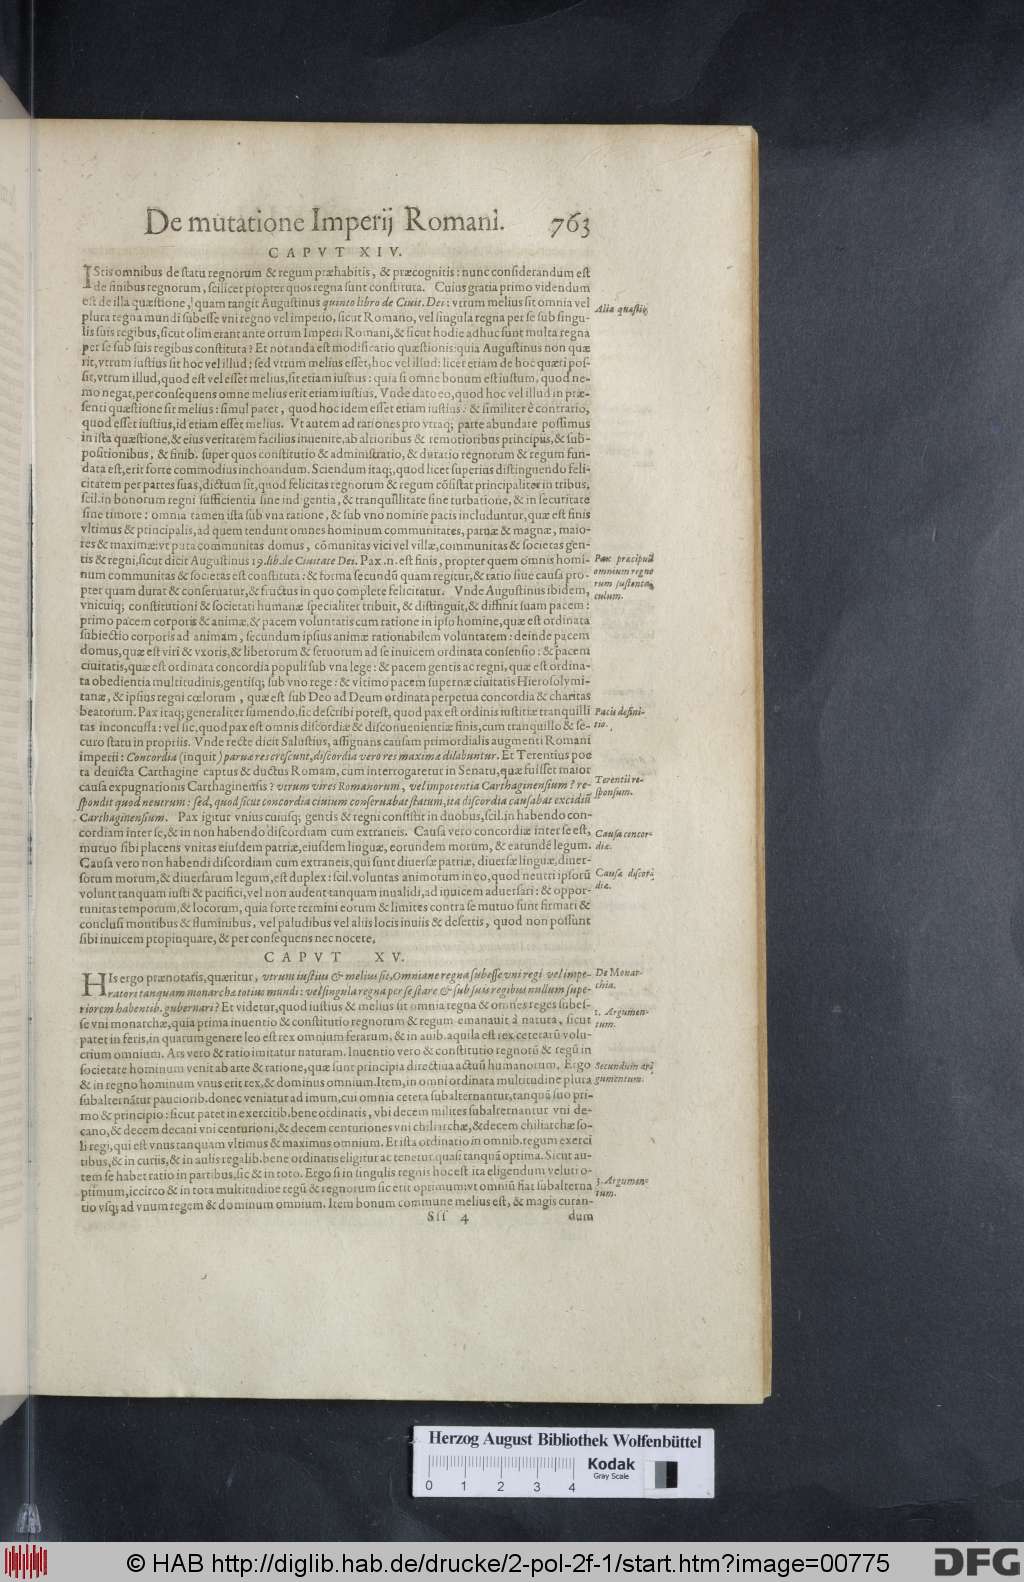 De mutatione Imperij Romani. 763
CAPVT XIV.
IStis omnibus de statu regnorum & regum præhabitis, & præcognitis: nunc considerandum est
de finibus regnorum, scilicet propter quos regna sunt constituta. Cuius gratia primo videndum
est de illa quæstione, quam tangit Augustinus quinto libro de Ciuit. Dei: vtrum melius sit omnia vel
Alia quæstio.
plura regna mundi subesse vni regno vel imperio, sicut Romano, vel singula regna per se sub singu-
lis suis regibus, sicut olim erant ante ortum Imperii Romani, & sicut hodie adhuc sunt multa regna
per se sub suis regibus constituta? Et notanda est modificatio quæstionis: quia Augustinus non quæ
rit, vtrum iustius sit hoc vel illud; sed vtrum melius esset, hoc vel illud: licet etiam de hoc quæri pos-
sit, vtrum illud, quod est vel esset melius, sit etiam iustius: quia si omne bonum est iustum, quod ne-
mo negat, per consequens omne melius erit etiam iustius. Vnde dato eo, quod hoc vel illud in præ-
senti quæstione sit melius: simul patet, quod hoc idem esset etiam iustius: & similiter è contrario,
quod esset iustius, id etiam esset melius. Vt autem ad rationes pro vtraq; parte abundare possimus
in ista quæstione, & eius veritatem facilius inuenire, ab altioribus & remotioribus principiis, & sub-
positionibus, & finib. super quos constitutio & administratio, & duratio regnorum & regum fun-
data est, erit forte commodius inchoandum. Sciendum itaq;, quod licet superius distinguendo feli-
citatem per partes suas, dictum sit, quod felicitas regnorum & regum cōsistat principaliter in tribus,
scil. in bonorum regni sufficientia sine indigentia, & tranquillitate sine turbatione, & in securitate
sine timore: omnia tamen ista sub vna ratione, & sub vno nomine pacis includuntur, quæ est finis
vltimus & principalis, ad quem tendunt omnes hominum communitates, paruæ & magnæ, maio-
res & maximæ: vt puta communitas domus, cōmunitas vici vel villæ, communitas & societas gen-
tis & regni, sicut dicit Augustinus 19. lib. de Ciuitate Dei. Pax .n. est finis, propter quem omnis homi-
Pax præcipuū
num communitas & societas est constituta: & forma secundū quam regitur, & ratio siue causa pro-
omnium regno
pter quam durat & conseruatur, & fructus in quo complete felicitatur. Vnde Augustinus ibidem,
rum sustenta-
vnicuiq; constitutioni & societati humanæ specialiter tribuit, & distinguit, & diffinit suam pacem:
culum.
primo pacem corporis & animæ, & pacem voluntatis cum ratione in ipso homine, quæ est ordinata
subiectio corporis ad animam, secundum ipsius animæ rationabilem voluntatem: deinde pacem
domus, quæ est viri & vxoris, & liberorum & seruorum ad se inuicem ordinata consensio: & pacem
ciuitatis, quæ est ordinata concordia populi sub vna lege: & pacem gentis ac regni, quæ est ordina-
ta obedientia multitudinis, gentisq; sub vno rege: & vltimo pacem supernæ ciuitatis Hierosolymi-
tanæ, & ipsius regni cœlorum, quæ est sub Deo ad Deum ordinata perpetua concordia & charitas
beatorum. Pax itaq; generaliter sumendo, sic describi potest, quod pax est ordinis iustitiæ tranquilli
Pacis defini-
tas inconcussa: vel sic, quod pax est omnis discordiæ & disconuenientiæ finis, cum tranquillo & se-
tio.
curo statu in propriis. Vnde recte dicit Salustius, assignans causam primordialis augmenti Romani
imperii: Concordia (inquit) paruæ res crescunt, discordia vero res maximæ dilabuntur. Et Terentius poe
ta deuicta Carthagine captus & ductus Romam, cum interrogaretur in Senatu, quæ fuisset maior
Terentii re-
causa expugnationis Carthaginensis? vtrum vires Romanorum, vel impotentia Carthaginensium? re-
sponsum.
spondit quod neutrum: sed, quod sicut concordia ciuium conseruabat statum, ita discordia causabat excidiū
Carthaginensium. Pax igitur vnius cuiusq; gentis & regni consistit in duobus, scil. in habendo con-
cordiam inter se, & in non habendo discordiam cum extraneis. Causa vero concordiæ inter se est,
Causa concor-
mutuo sibi placens vnitas eiusdem patriæ, eiusdem linguæ, eorundem morum, & earundē legum.
diæ.
Causa vero non habendi discordiam cum extraneis, qui sunt diuersæ patriæ, diuersæ linguæ, diuer-
sorum morum, & diuersarum legum, est duplex: scil. voluntas animorum in eo, quod neutri ipsorū
Causa discor-
volunt tanquam iusti & pacifici, vel non audent tanquam inualidi, ad inuicem aduersari: & oppor-
diæ.
tunitas temporum, & locorum, quia forte termini eorum & limites contra se mutuo sunt firmati &
conclusi montibus & fluminibus, vel paludibus vel aliis locis inuiis & desertis, quod non possunt
sibi inuicem propinquare, & per consequens nec nocere.
CAPVT XV.
HIs ergo prænotatis, quæritur, vtrum iustius & melius sit, Omniane regna subesse vni regi vel impe-
De Monar-
ratori tanquam monarchæ totius mundi: vel singula regna per se stare & sub suis regibus nullum supe-
chia.
riorem habentib. gubernari? Et videtur, quod iustius & melius sit omnia regna & omnes reges subes-
1. Argumen-
se vni monarchæ, quia prima inuentio & constitutio regnorum & regum emanauit à natura, sicut
tum.
patet in feris, in quarum genere leo est rex omnium ferarum, & in auib. aquila est rex ceterarū volu-
crium omnium. Ars vero & ratio imitatur naturam. Inuentio vero & constitutio regnorū & regū in
societate hominum venit ab arte & ratione, quæ sunt principia directiua actuū humanorum. Ergo
Secundum ar-
& in regno hominum vnus erit rex, & dominus omnium. Item, in omni ordinata multitudine plura
gumentum.
subalternātur paucioribus, donec veniatur ad imum, cui omnia cetera subalternantur, tanquā suo pri-
mo & principio: sicut patet in exercitib. bene ordinatis, vbi decem milites subalternantur vni de-
cano, & decem decani vni centurioni, & decem centuriones vni chiliarchæ, & decem chiliarchæ so-
li regi, qui est vnus tanquam vltimus & maximus omnium. Et ista ordinatio in omnib. regum exerci
tibus, & in curiis, & in aulis regalib. bene ordinatis eligitur ac tenetur quasi tanquā optima. Sicut au-
tem se habet ratio in partibus, sic & in toto. Ergo si in singulis regnis hoc est ita eligendum veluti o-
ptimum, iccirco & in tota multitudine regū & regnorum sic erit optimum: vt omniū fiat subalterna
3. Argumen-
tio vsq; ad vnum regem & dominum omnium. Item bonum commune melius est, & magis curan-
tum.
Sss 4 dum
Herzog August Bibliothek Wolfenbüttel
Kodak
Gray Scale
0 1 2 3 4
© HAB http://diglib.hab.de/drucke/2-pol-2f-1/start.htm?image=00775
DFG